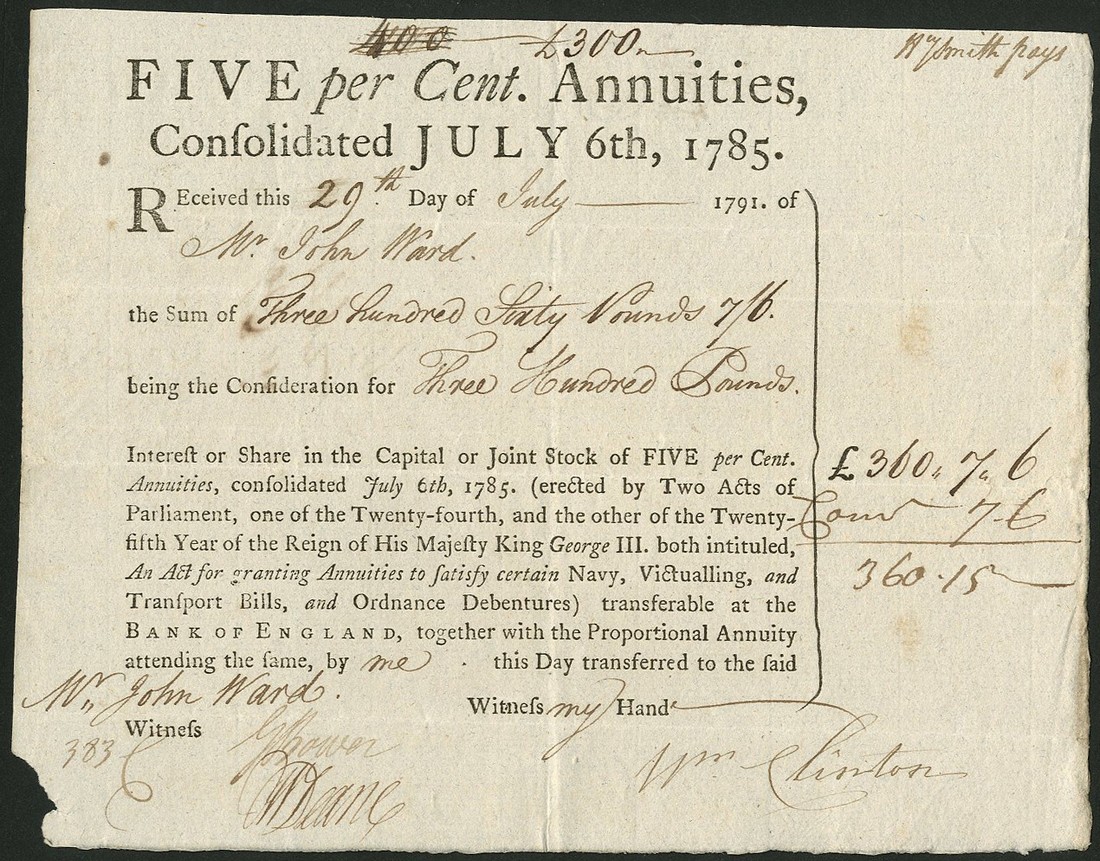 £300
Wm Smith pays
FIVE per Cent. Annuities,
Conſolidated JULY 6th, 1785.
REceived this 29th Day of July 1791. of
Mr. John Ward.
the Sum of Three hundred Sixty Pounds 7/6.
being the Conſideration for Three Hundred Pounds.
Intereſt or Share in the Capital or Joint Stock of FIVE per Cent.
Annuities, conſolidated July 6th, 1785. (erected by Two Acts of
Parliament, one of the Twenty-fourth, and the other of the Twenty-
fifth Year of the Reign of His Majeſty King George III. both intituled,
An Act for granting Annuities to ſatisfy certain Navy, Victualling, and
Tranſport Bills, and Ordnance Debentures) transferable at the
BANK OF ENGLAND, together with the Proportional Annuity
attending the ſame, by me . this Day transferred to the ſaid
Mr. John Ward.
Witneſs my Hand
Witneſs
383
Wm Clinton
£360 " 7 " 6
7-6
360.15